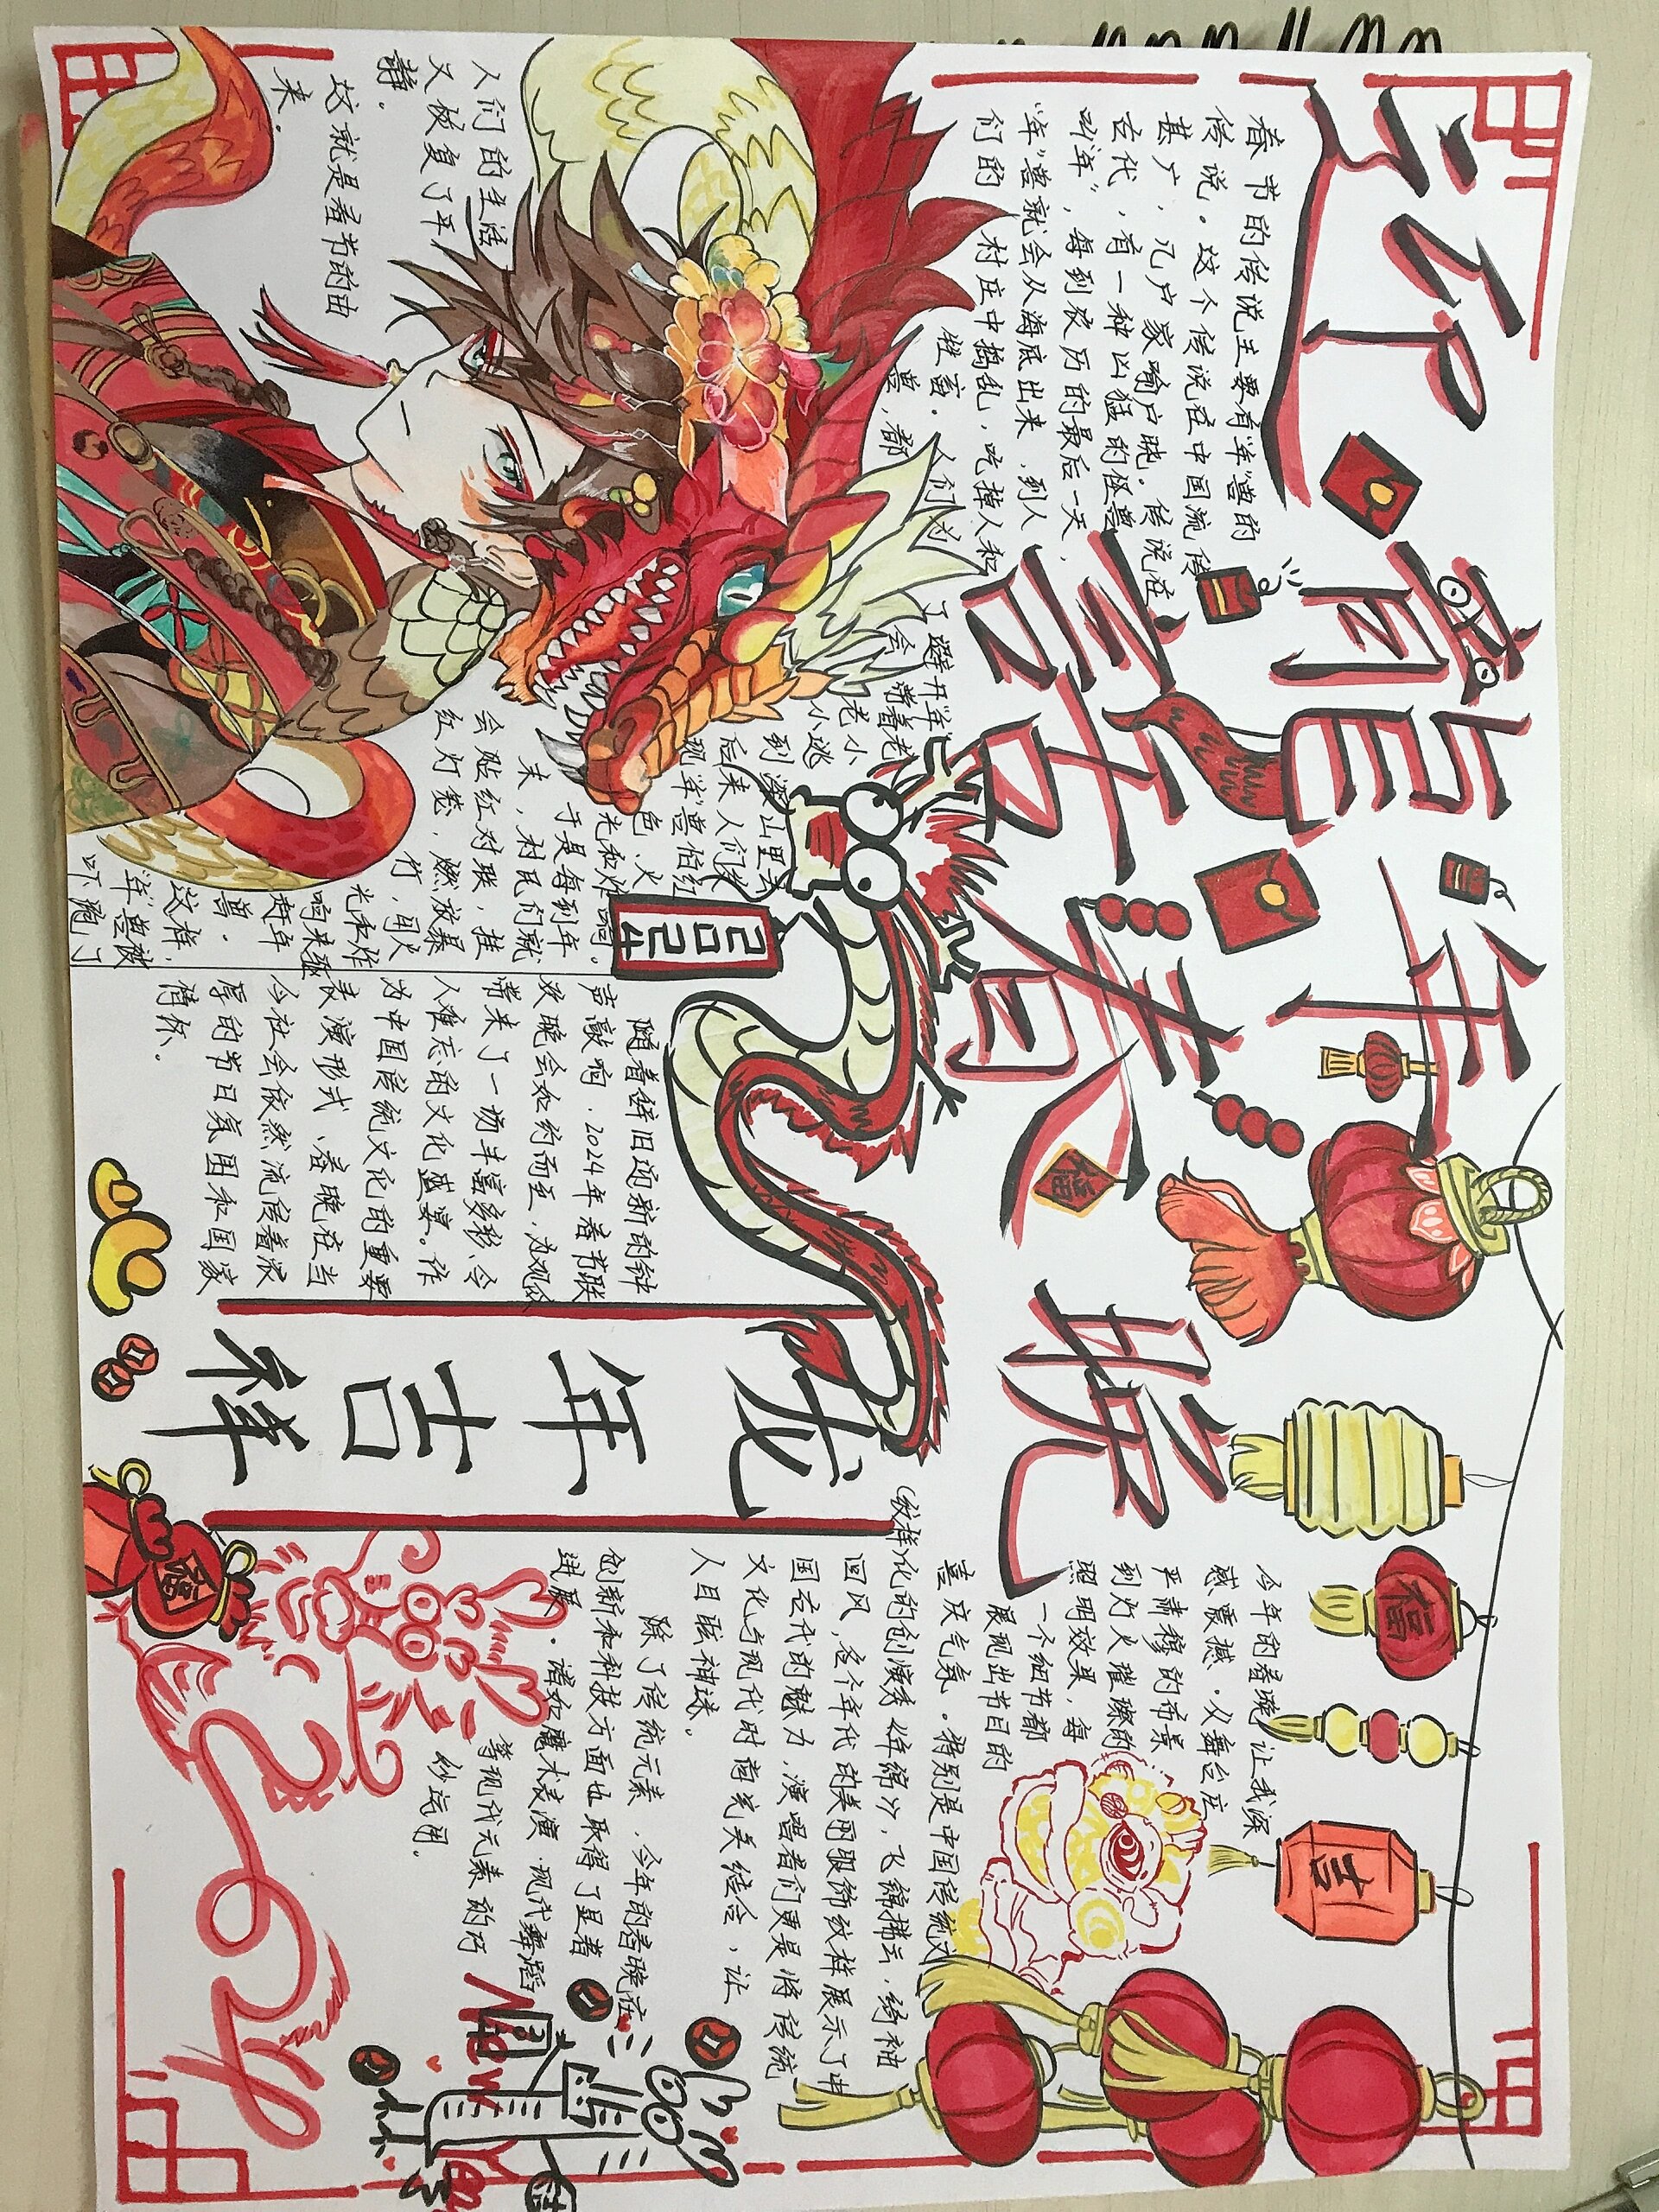 迎龍年
話春晚
春节的传说主要有“年”兽的
传说。这个传说在中国流传
甚广，几户家喻户晓。传说在
古代，有一种凶猛的怪兽
叫“年”，每到农历的最后一天，
“年”兽就会从海底出来，到人
们的村庄中捣乱，吃掉人和
牲畜。人们为了避开“年”
兽，都会带着老
老小
小逃
到深山里去
后来人们发
现“年”兽怕红
色、火
光和炸响。
于是每到年
末，村民们就
会贴红对联，挂
红灯笼，燃放暴
竹，用火
光和炸
响来驱
赶年
兽。
这样，
“年”兽被
吓跑了
人们的生活
又恢复了平
静。
这就是春节的由
来。
随着辞旧迎新的钟
声敲响，2024年春节联
欢晚会如约而至，为观众
带来了一场丰富多彩、令
人难忘的文化盛宴。作
为中国传统文化的重要
表演形式，春晚在当
今社会依然流传着浓
厚的节日氛围和国家
情怀。
龙年吉祥
今年的春晚让我深
感震撼。从舞台庄
严肃穆的布景
到灯火璀璨的
照明效果，每
一个细节都
展现出节目的
喜庆气氛。特别是中国传统文
(纹样)化的创演秀《年锦》，飞绵拂云，绮袖
回风，各个年代的美丽服饰纹样展示了中
国古代的魅力，演唱者们更是将传统
文化与现代时尚完美结合，让
人目眩神迷。
除了传统元素，今年的春晚在
创新和科技方面也取得了显著
进展。诸如魔术表演、现代舞蹈
等现代元素的巧
妙运用。
福
福
吉
福
New